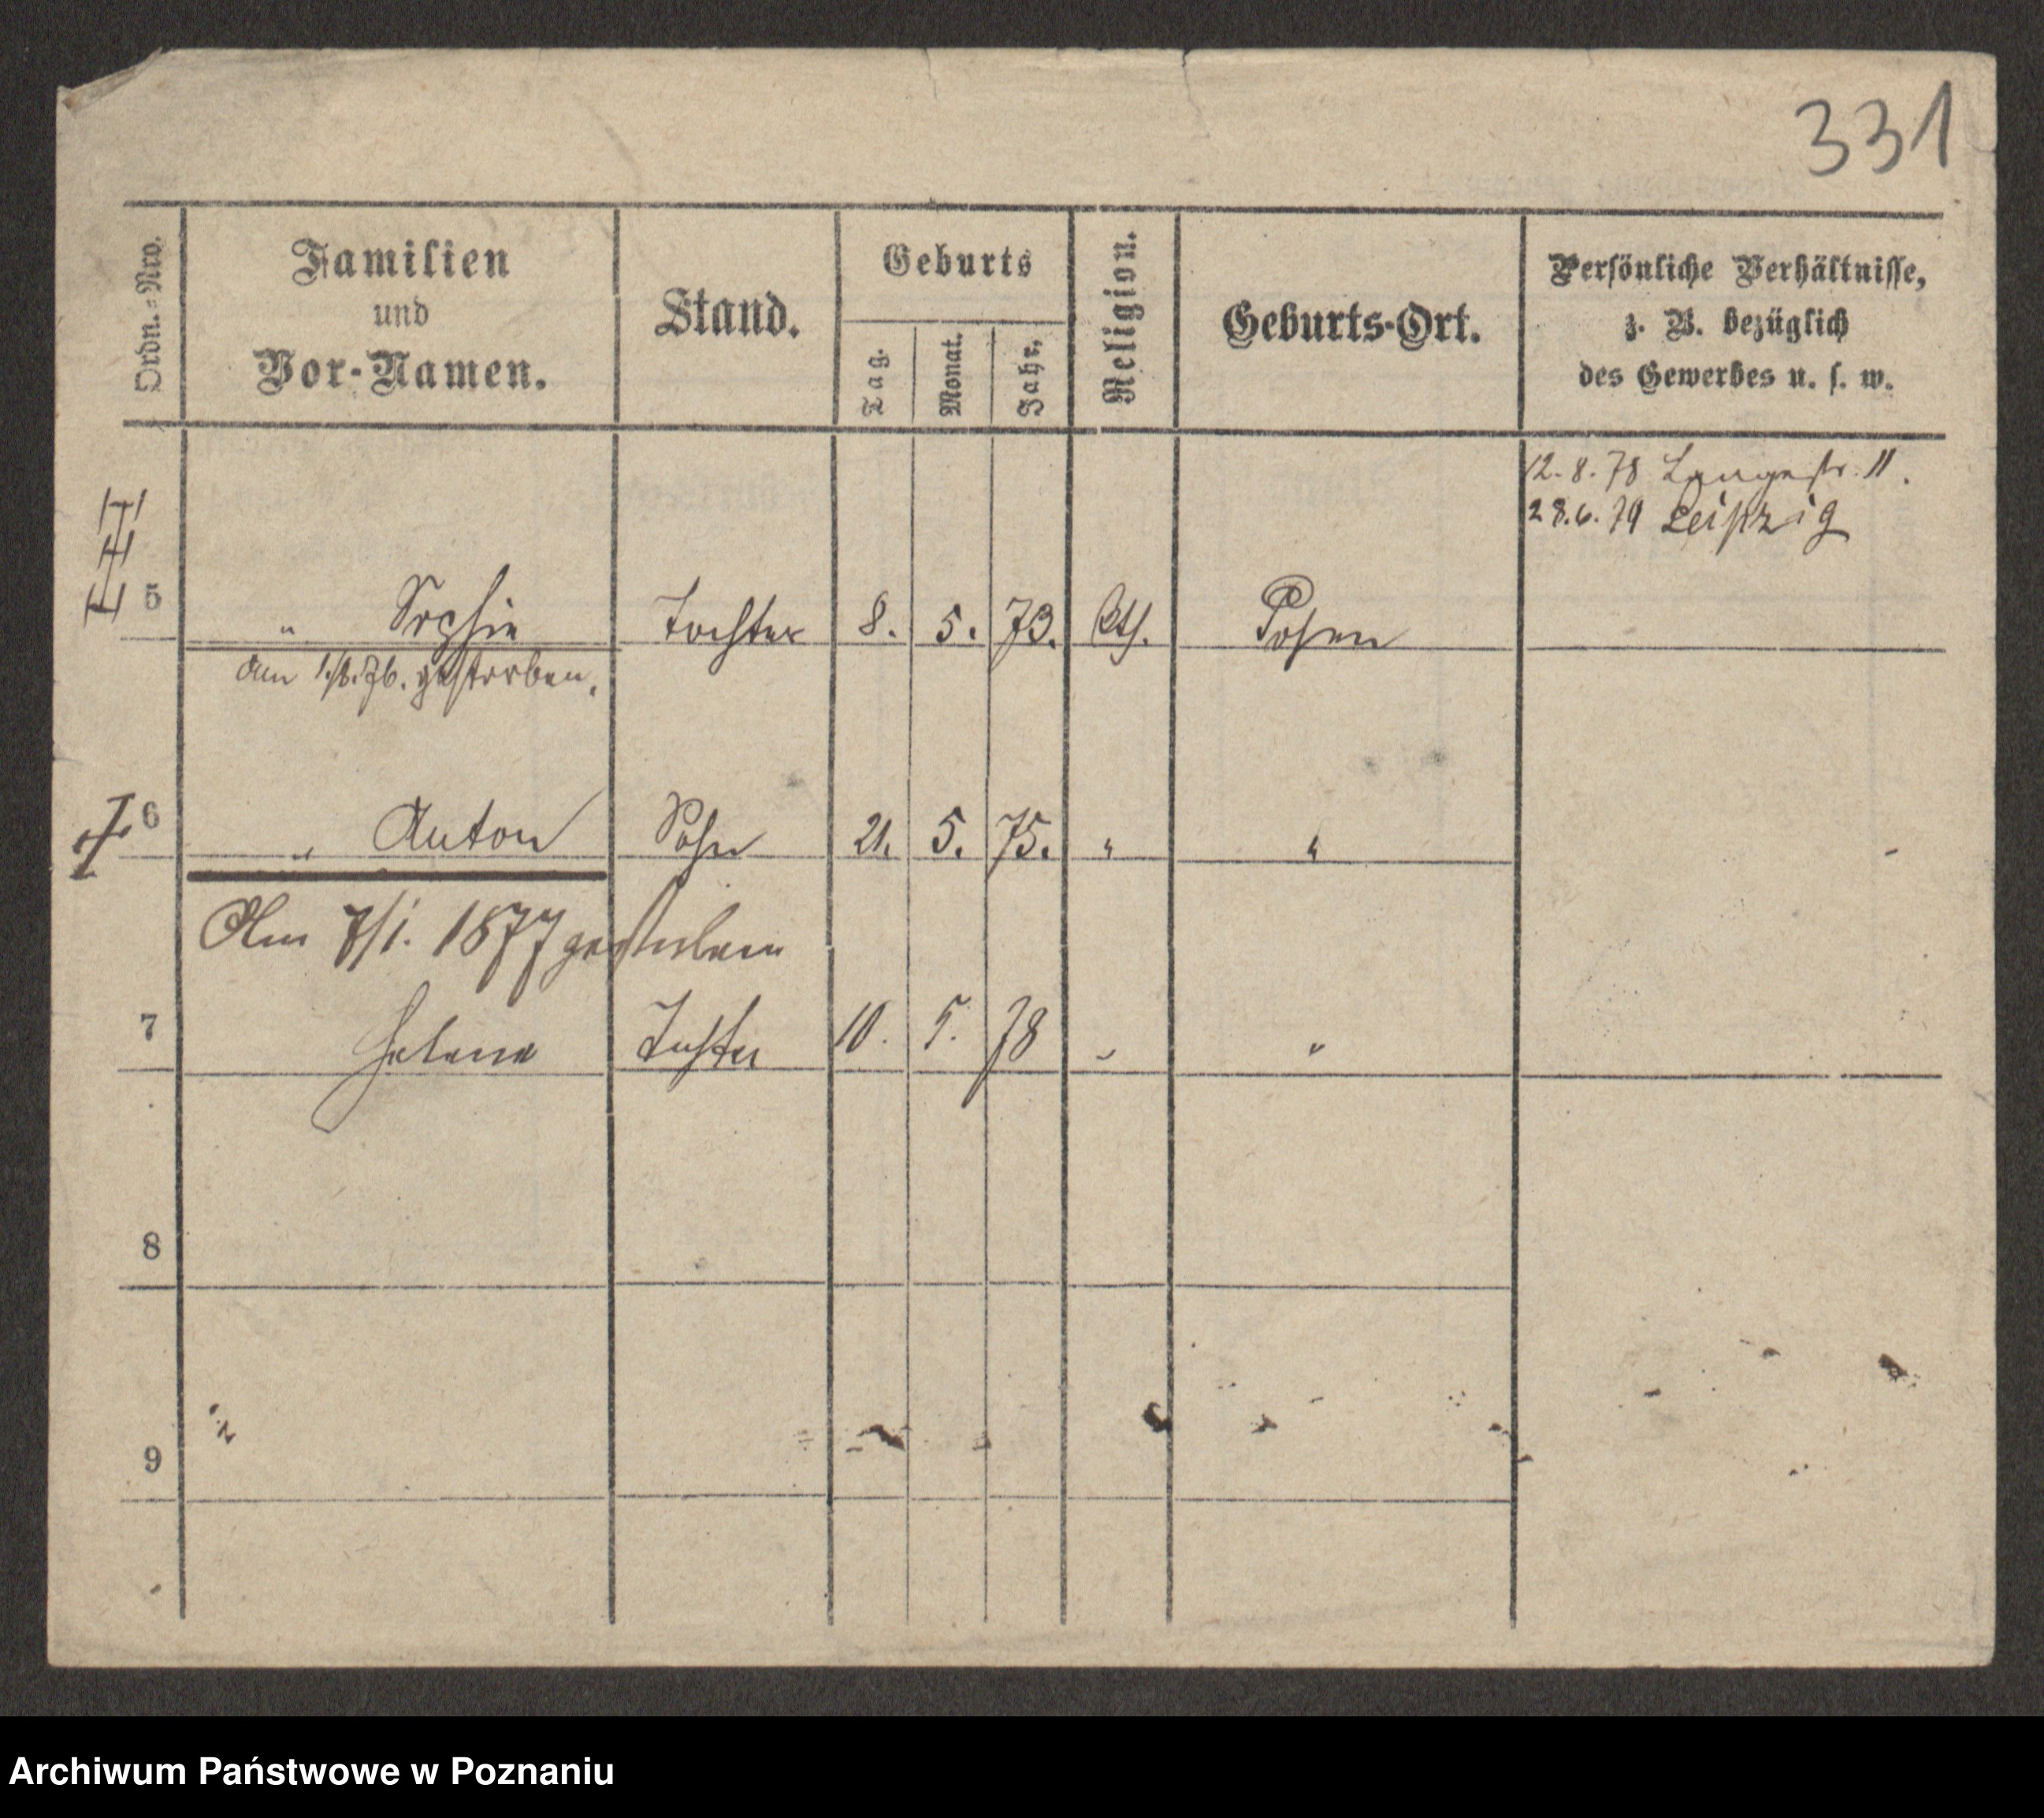 331
Ordn.-Nro.
Familien
und
Vor-Namen.
Stand.
Geburts
Tag.
Monat.
Jahr.
Religion.
Geburts-Ort.
Persönliche Verhältnisse,
z. B. bezüglich
des Gewerbes u. s. w.
12.8.78 Langestr. 11.
28.6.79 Leipzig
5 " Sophie Tochter 8. 5. 73. kth. Posen
am gestorben.
6 " Anton Sohn 21. 5. 75. " "
Am 7/1. 1877 gestorben
7 Helene Tochter 10. 5. 78 " "
8
9
Archiwum Państwowe w Poznaniu